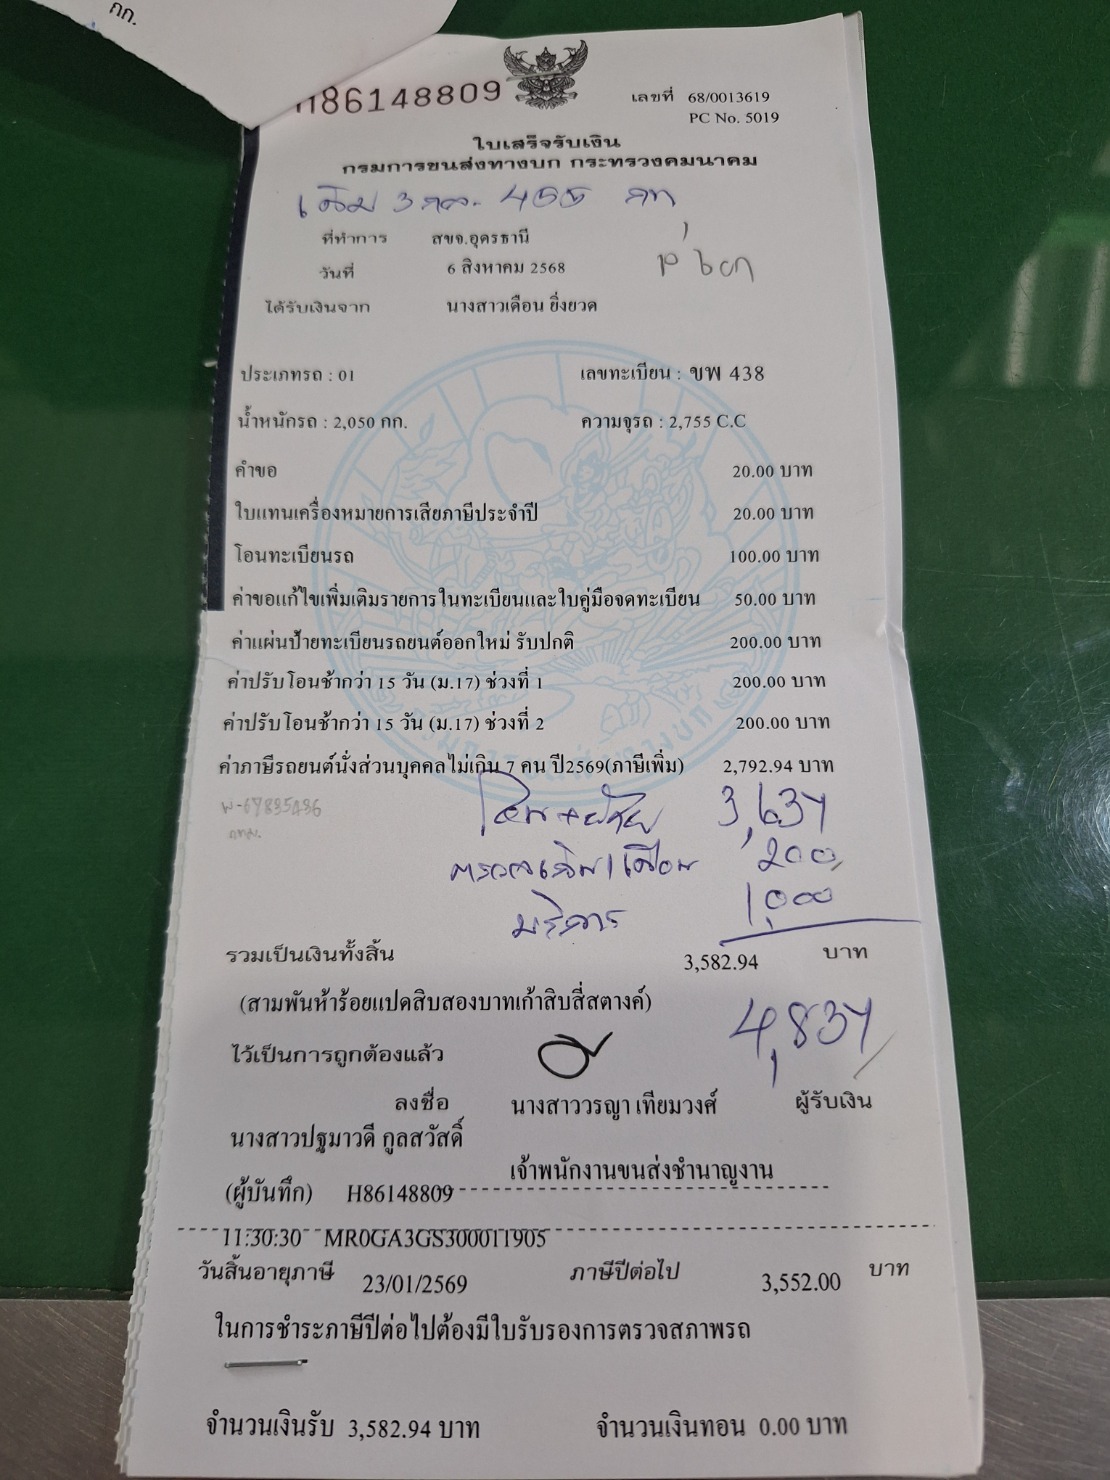 กก.
H86148809
เลขที่ 68/0013619
PC No. 5019
ใบเสร็จรับเงิน
กรมการขนส่งทางบก กระทรวงคมนาคม
เดิม 3 กฉ. 455 กท
ที่ทำการ สขจ.อุดรธานี
วันที่ 6 สิงหาคม 2568
ได้รับเงินจาก นางสาวเดือน ยิ่งยวด
ประเภทรถ : 01 เลขทะเบียน : ขพ 438
น้ำหนักรถ : 2,050 กก. ความจุรถ : 2,755 C.C
คำขอ 20.00 บาท
ใบแทนเครื่องหมายการเสียภาษีประจำปี 20.00 บาท
โอนทะเบียนรถ 100.00 บาท
ค่าขอแก้ไขเพิ่มเติมรายการในทะเบียนและใบคู่มือจดทะเบียน 50.00 บาท
ค่าแผ่นป้ายทะเบียนรถยนต์ออกใหม่ รับปกติ 200.00 บาท
ค่าปรับโอนช้ากว่า 15 วัน (ม.17) ช่วงที่ 1 200.00 บาท
ค่าปรับโอนช้ากว่า 15 วัน (ม.17) ช่วงที่ 2 200.00 บาท
ค่าภาษีรถยนต์นั่งส่วนบุคคลไม่เกิน 7 คน ปี2569(ภาษีเพิ่ม) 2,792.94 บาท
โอน+ย้าย 3,637
200
บริการ 1,000
รวมเป็นเงินทั้งสิ้น 3,582.94 บาท
(สามพันห้าร้อยแปดสิบสองบาทเก้าสิบสี่สตางค์)
4,837
ไว้เป็นการถูกต้องแล้ว
ลงชื่อ นางสาววรญา เทียมวงศ์ ผู้รับเงิน
นางสาวปฐมาวดี กูลสวัสดิ์
เจ้าพนักงานขนส่งชำนาญงาน
(ผู้บันทึก) H86148809
11:30:30 MR0GA3GS300011905
วันสิ้นอายุภาษี 23/01/2569 ภาษีปีต่อไป 3,552.00 บาท
ในการชำระภาษีปีต่อไปต้องมีใบรับรองการตรวจสภาพรถ
จำนวนเงินรับ 3,582.94 บาท จำนวนเงินทอน 0.00 บาท